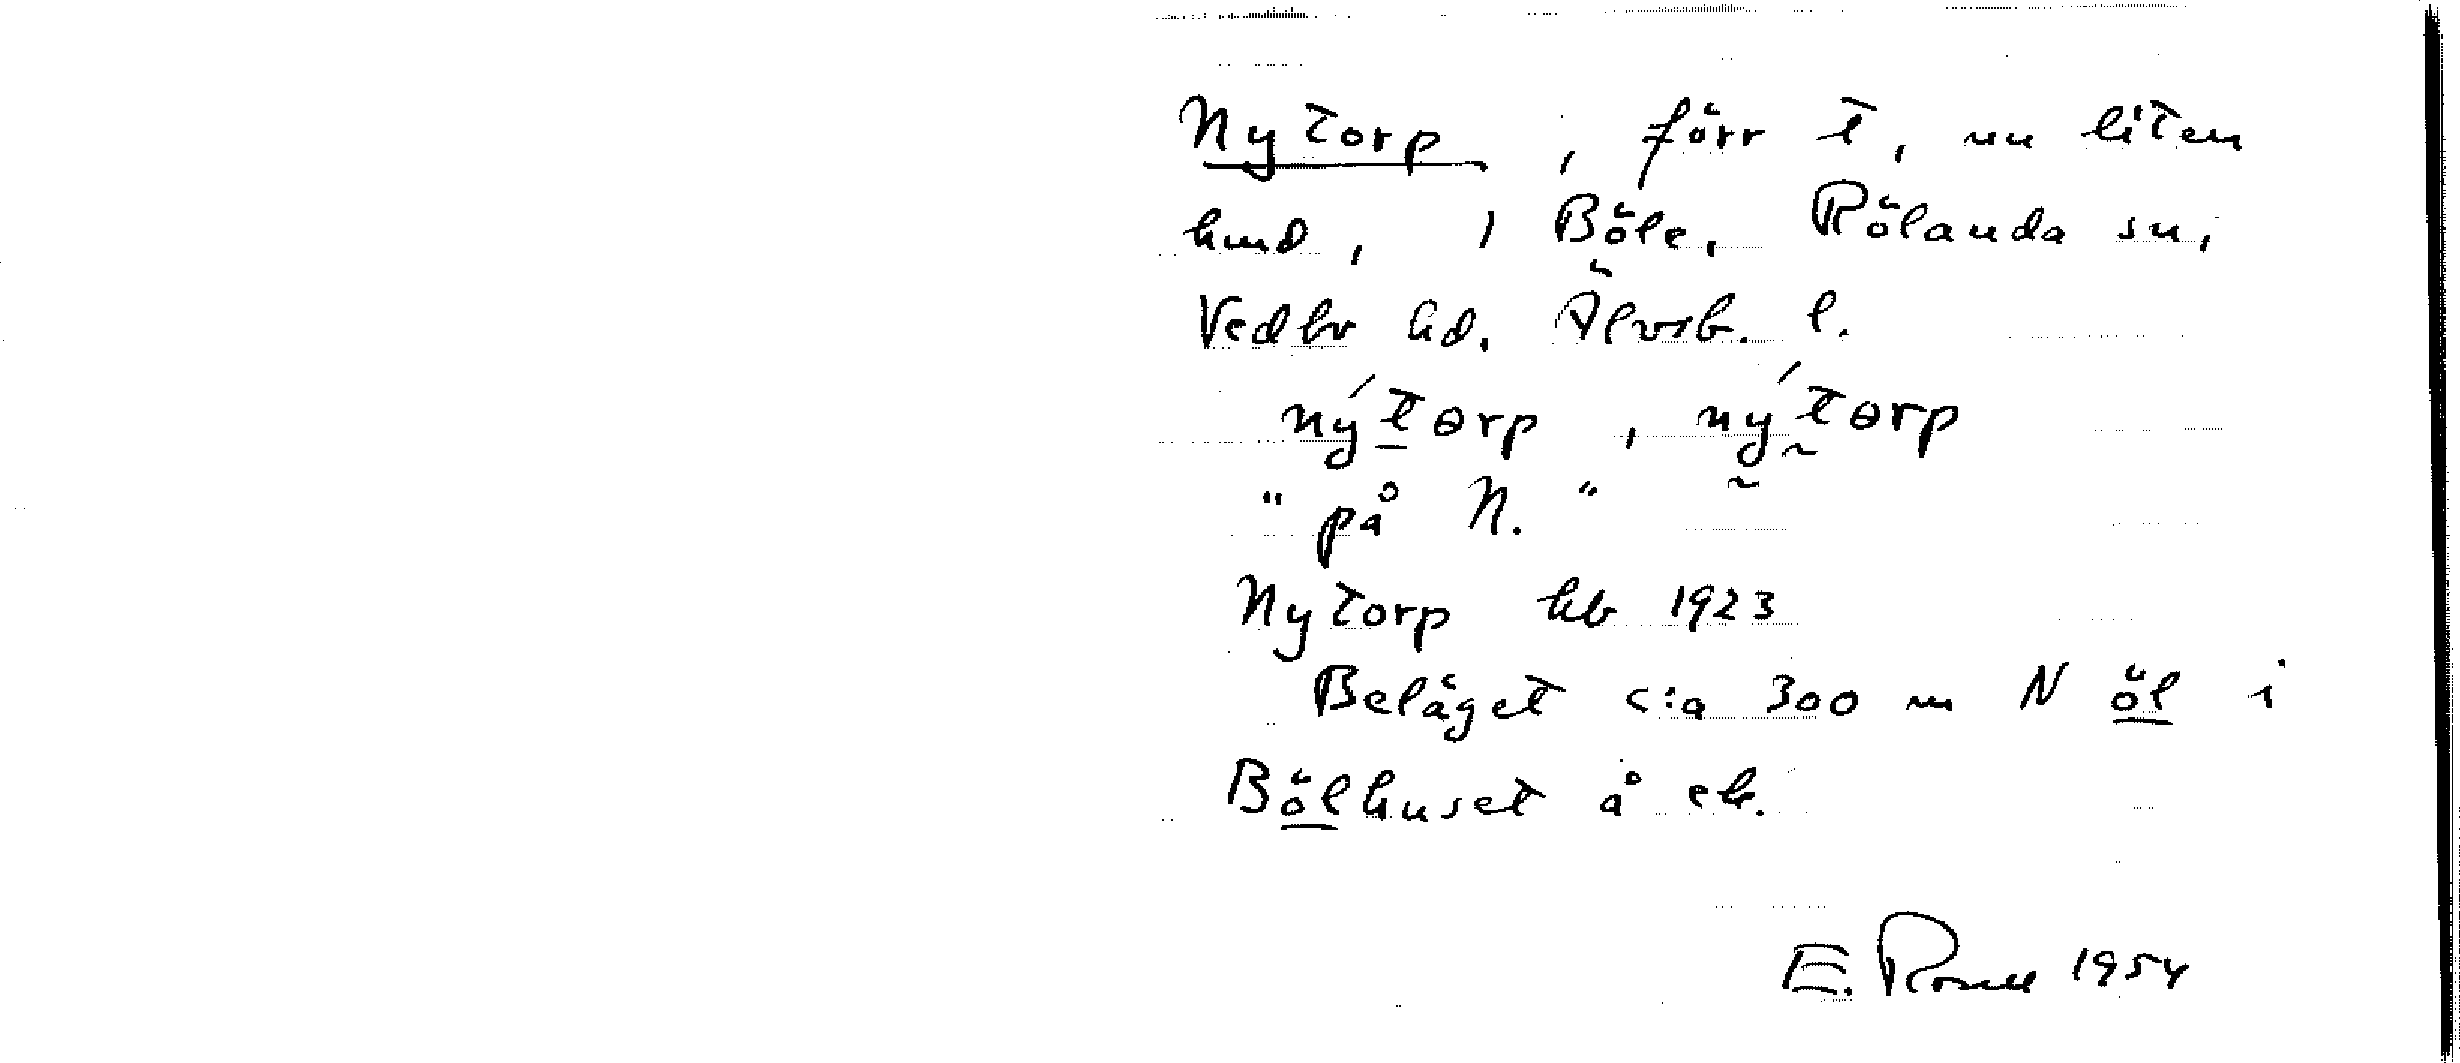 Nytorp, förr t, nu liten
hmd, i Böle, Rölanda sn,
Vedbo hd. Älvsb. l.
nýtɵrp, nýtɵrp
"på N."
Nytorp kb 1923
Beläget c:a 300 m N öl i
Bölhuset å ek.
E. Rosell 1954